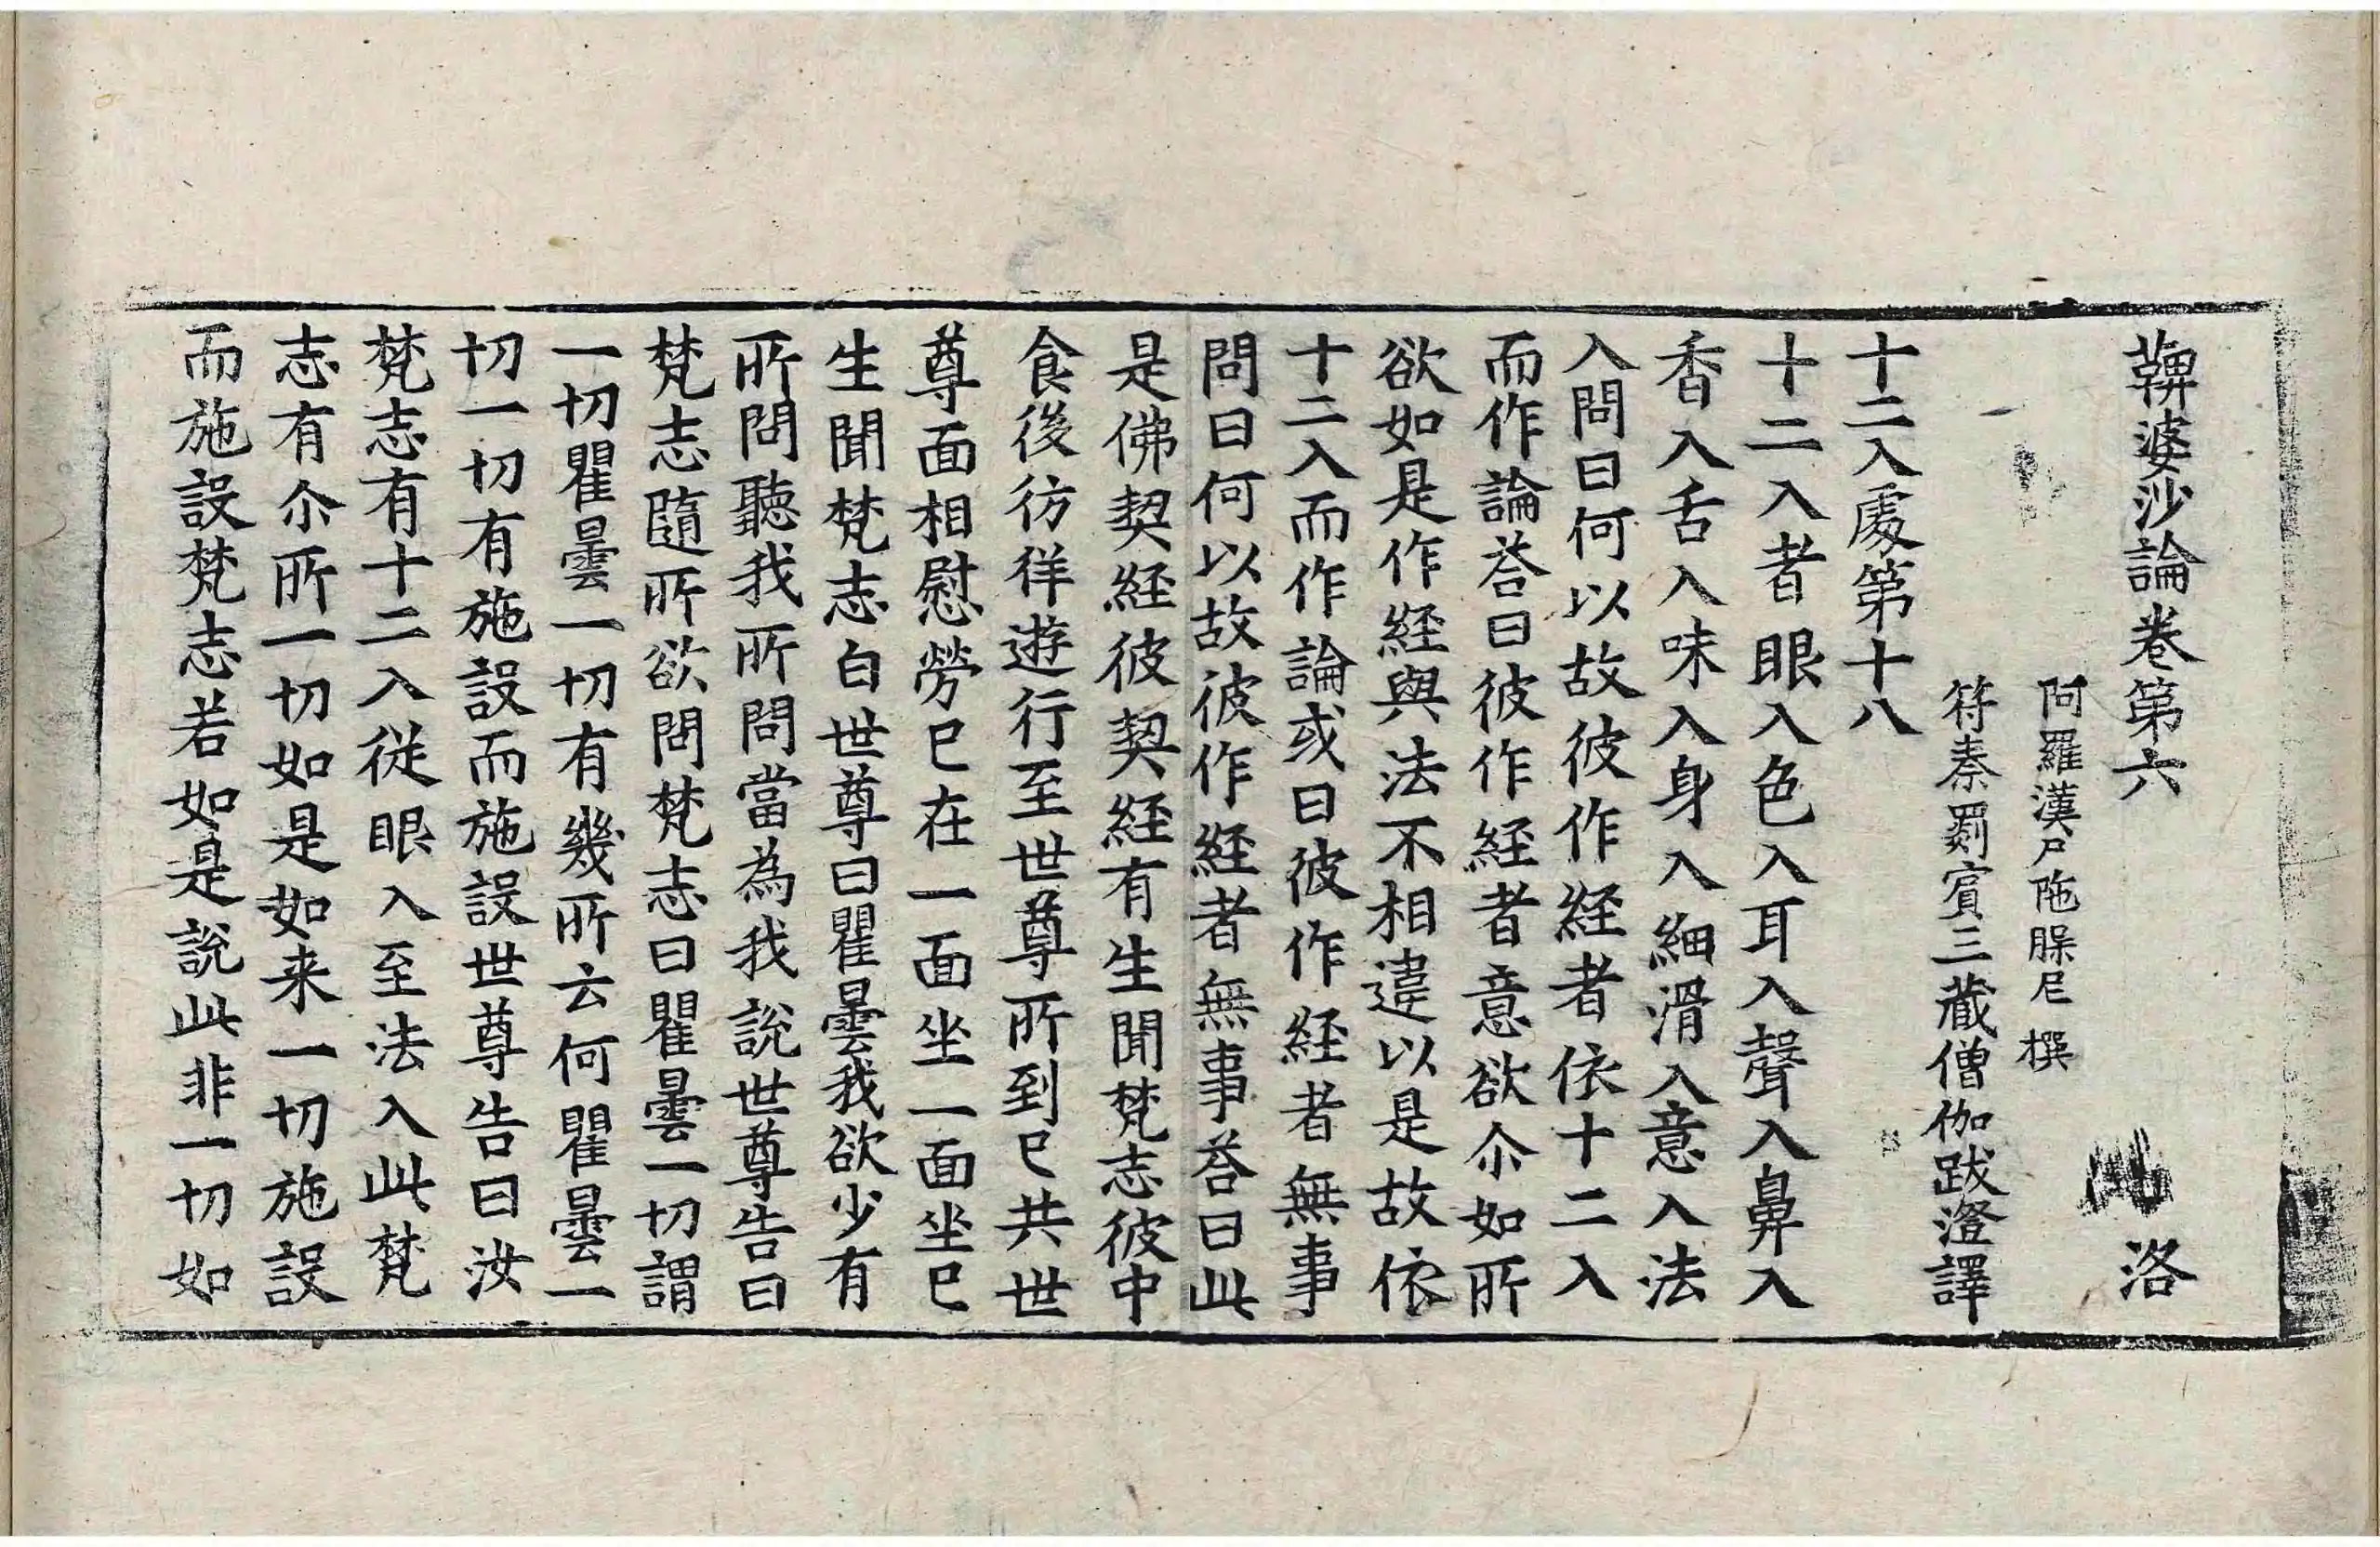 鞞婆沙論卷第六 洛
阿羅漢尸陁槃尼 撰
符秦罽賔三藏僧伽跋澄譯
十二入處第十八
十二入者眼入色入耳入聲入鼻入
香入舌入味入身入細滑入意入法
入問曰何以故彼作経者依十二入
而作論荅曰彼作経者意欲尒如所
欲如是作経與法不相違以是故依
十二入而作論或曰彼作経者無事
問曰何以故彼作経者無事荅曰此
是佛契経彼契経有生聞梵志彼中
食後彷徉遊行至世尊所到已共世
尊面相慰勞已在一面坐一面坐已
生聞梵志白世尊曰瞿曇我欲少有
所問聽我所問當為我說世尊告曰
梵志隨所欲問梵志曰瞿曇一切謂
一切瞿曇一切有幾所云何瞿曇一
切一切有施設而施設世尊告曰汝
梵志有十二入從眼入至法入此梵
志有尒所一切如是如来一切施設
而施設梵志若如是說此非一切如